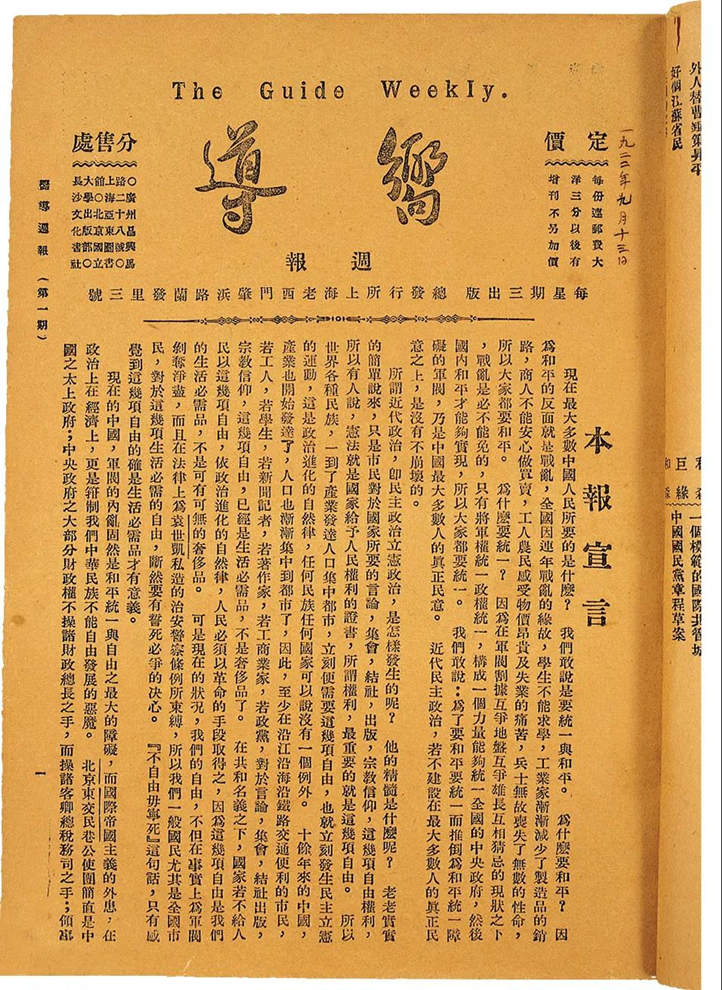 The Guide Weekly.
嚮導
週報
定價
每份連郵費大
洋三分以後有
增刊不另加價
一九二二年九月十三日
分售處
〇廣州昌興馬
路二十八號〇
上海亞東圖書
館〇北京國立
大學出版部〇
長沙文化書社
每星期三出版 總發行所上海老西門肇浜路蘭發里三號
嚮導週報 (第一期)
本報宣言
現在最大多數中國人民所要的是什麼? 我們敢說是要統一與和平。 為什麼要和平? 因
為和平的反面就是戰亂,全國因連年戰亂的緣故,學生不能求學,工業家漸漸減少了製造品的銷
路,商人不能安心做買賣,工人農民感受物價昂貴及失業的痛苦,兵士無故喪失了無數的性命,
所以大家都要和平。 為什麼要統一? 因為在軍閥割據互爭地盤互爭雄長互相猜忌的現狀之下
,戰亂是必不能免的,只有將軍權統一政權統一,構成一個力量能夠統一全國的中央政府,然後
國內和平才能夠實現,所以大家都要統一。 我們敢說:為了要和平要統一而推倒為和平統一障
礙的軍閥,乃是中國最大多數人的真正民意。 近代民主政治,若不建設在最大多數人的真正民
意之上,是沒有不崩壞的。
所謂近代政治,卽民主政治立憲政治,是怎樣發生的呢? 他的精髓是什麼呢? 老老實實
的簡單說來,只是市民對於國家所要的言論,集會,結社,出版,宗教信仰,這幾項自由權利,
所以有人說,憲法就是國家給予人民權利的證書,所謂權利,最重要的就是這幾項自由。 所以
世界各種民族,一到了產業發達人口集中都市,立刻便需要這幾項自由,也就立刻發生民主立憲
的運動,這是政治進化的自然律,任何民族任何國家可以說沒有一個例外。 十餘年來的中國,
產業也開始發達了,人口也漸漸集中到都市了,因此,至少在沿江沿海沿鐵路交通便利的市民,
若工人,若學生,若新聞記者,若著作家,若工商業家,若政黨,對於言論,集會,結社出版,
宗教信仰,這幾項自由,已經是生活必需品,不是奢侈品了。 在共和名義之下,國家若不給人
民以這幾項自由,依政治進化的自然律,人民必須以革命的手段取得之,因為這幾項自由是我們
的生活必需品,不是可有可無的奢侈品。 可是現在的狀況,我們的自由,不但在事實上為軍閥
剝奪淨盡,而且在法律上為袁世凱私造的治安警察條例所束縛,所以我們一般國民尤其是全國市
民,對於這幾項生活必需的自由,斷然要有誓死必爭的決心。 『不自由毋寧死』這句話,只有感
覺到這幾項自由的確是生活必需品才有意義。
現在的中國,軍閥的內亂固然是和平統一與自由之最大的障礙,而國際帝國主義的外患,在
政治上在經濟上,更是箝制我們中華民族不能自由發展的惡魔。 北京東交民巷公使團簡直是中
國之太上政府;中央政府之大部分財政權不操諸財政總長之手,而操諸客卿總稅務司之手;領
一
外人替曹錕策昇平
好個江蘇省民
一個模範的國際共管城
中國國民黨章程草案